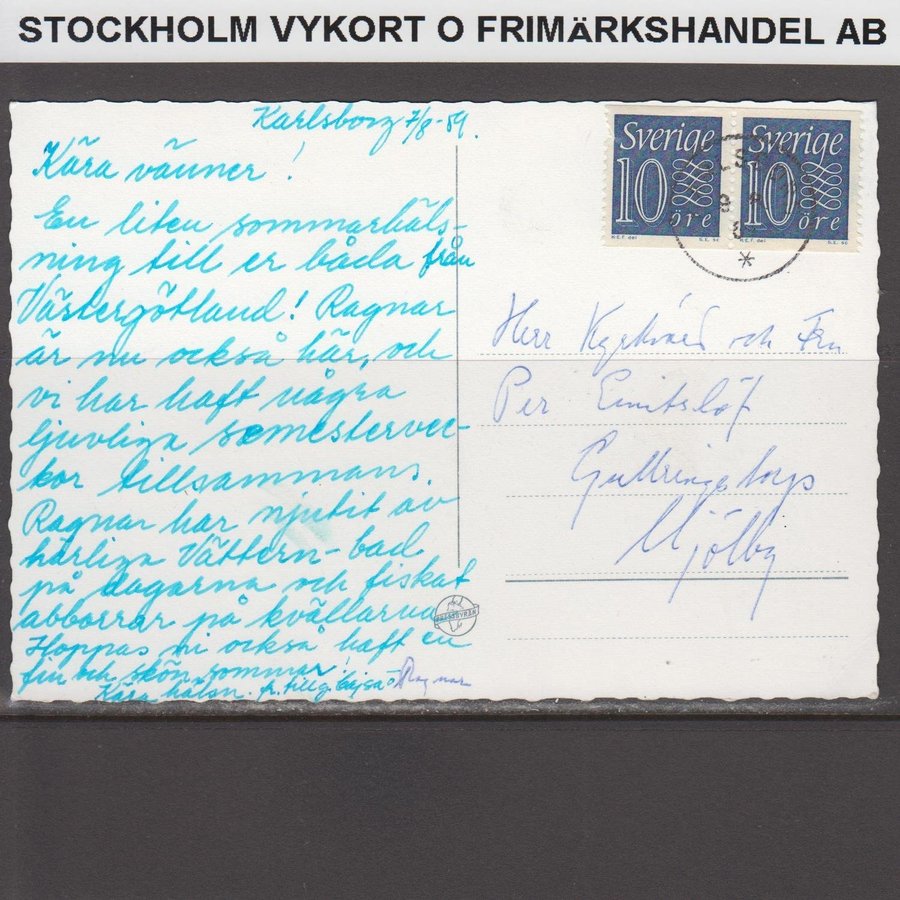 STOCKHOLM VYKORT O FRIMÄRKSHANDEL AB
Karlsborg 7/8-59.
Kära vänner!
En liten sommarhäls-
ning till er båda från
Västergötland! Ragnar
är nu också här, och
vi har haft några
ljuvliga semestervec-
kor tillsammans.
Ragnar har njutit av
härliga Vättern-bad
på dagarna och fiskat
abborrar på kvällarna
Hoppas ni också haft en
fin och skön sommar!
Kära hälsn. fr. tillg. Cajsa o Ragnar
Sverige
10
öre
Sverige
10
öre
Herr och Fru
Per
Gullringstorps
Mjölby